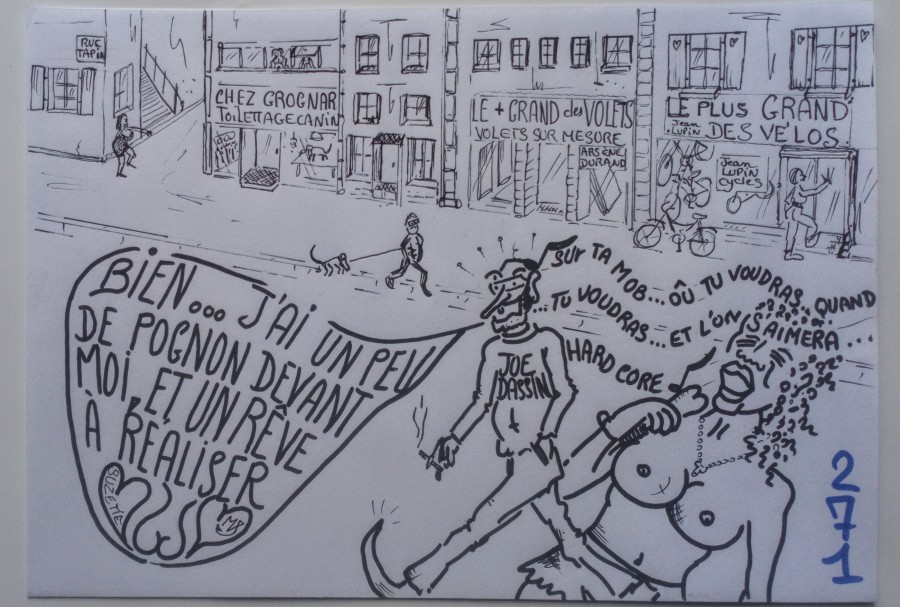 RUE
TAPIN
CHEZ GROGNAR
TOILETTAGE CANIN
LE + GRAND des VOLETS
VOLETS SUR MESORE
ARSÈNE
DURAND
LE PLUS GRAND
Jean
LUPIN
DES VÉLOS
Jean
LUPIN
CYCLES
BIEN... J'AI UN PEU
DE POGNON DEVANT
MOI, ET UN RÊVE
À RÉALISER
SUZETTE
SUR TA MOB... OÛ TU VOUDRAS.. QUAND
... TU VOUDRAS... ET L'ON S'AIMERA...
HARD CORE
JOE
DASSIN
271